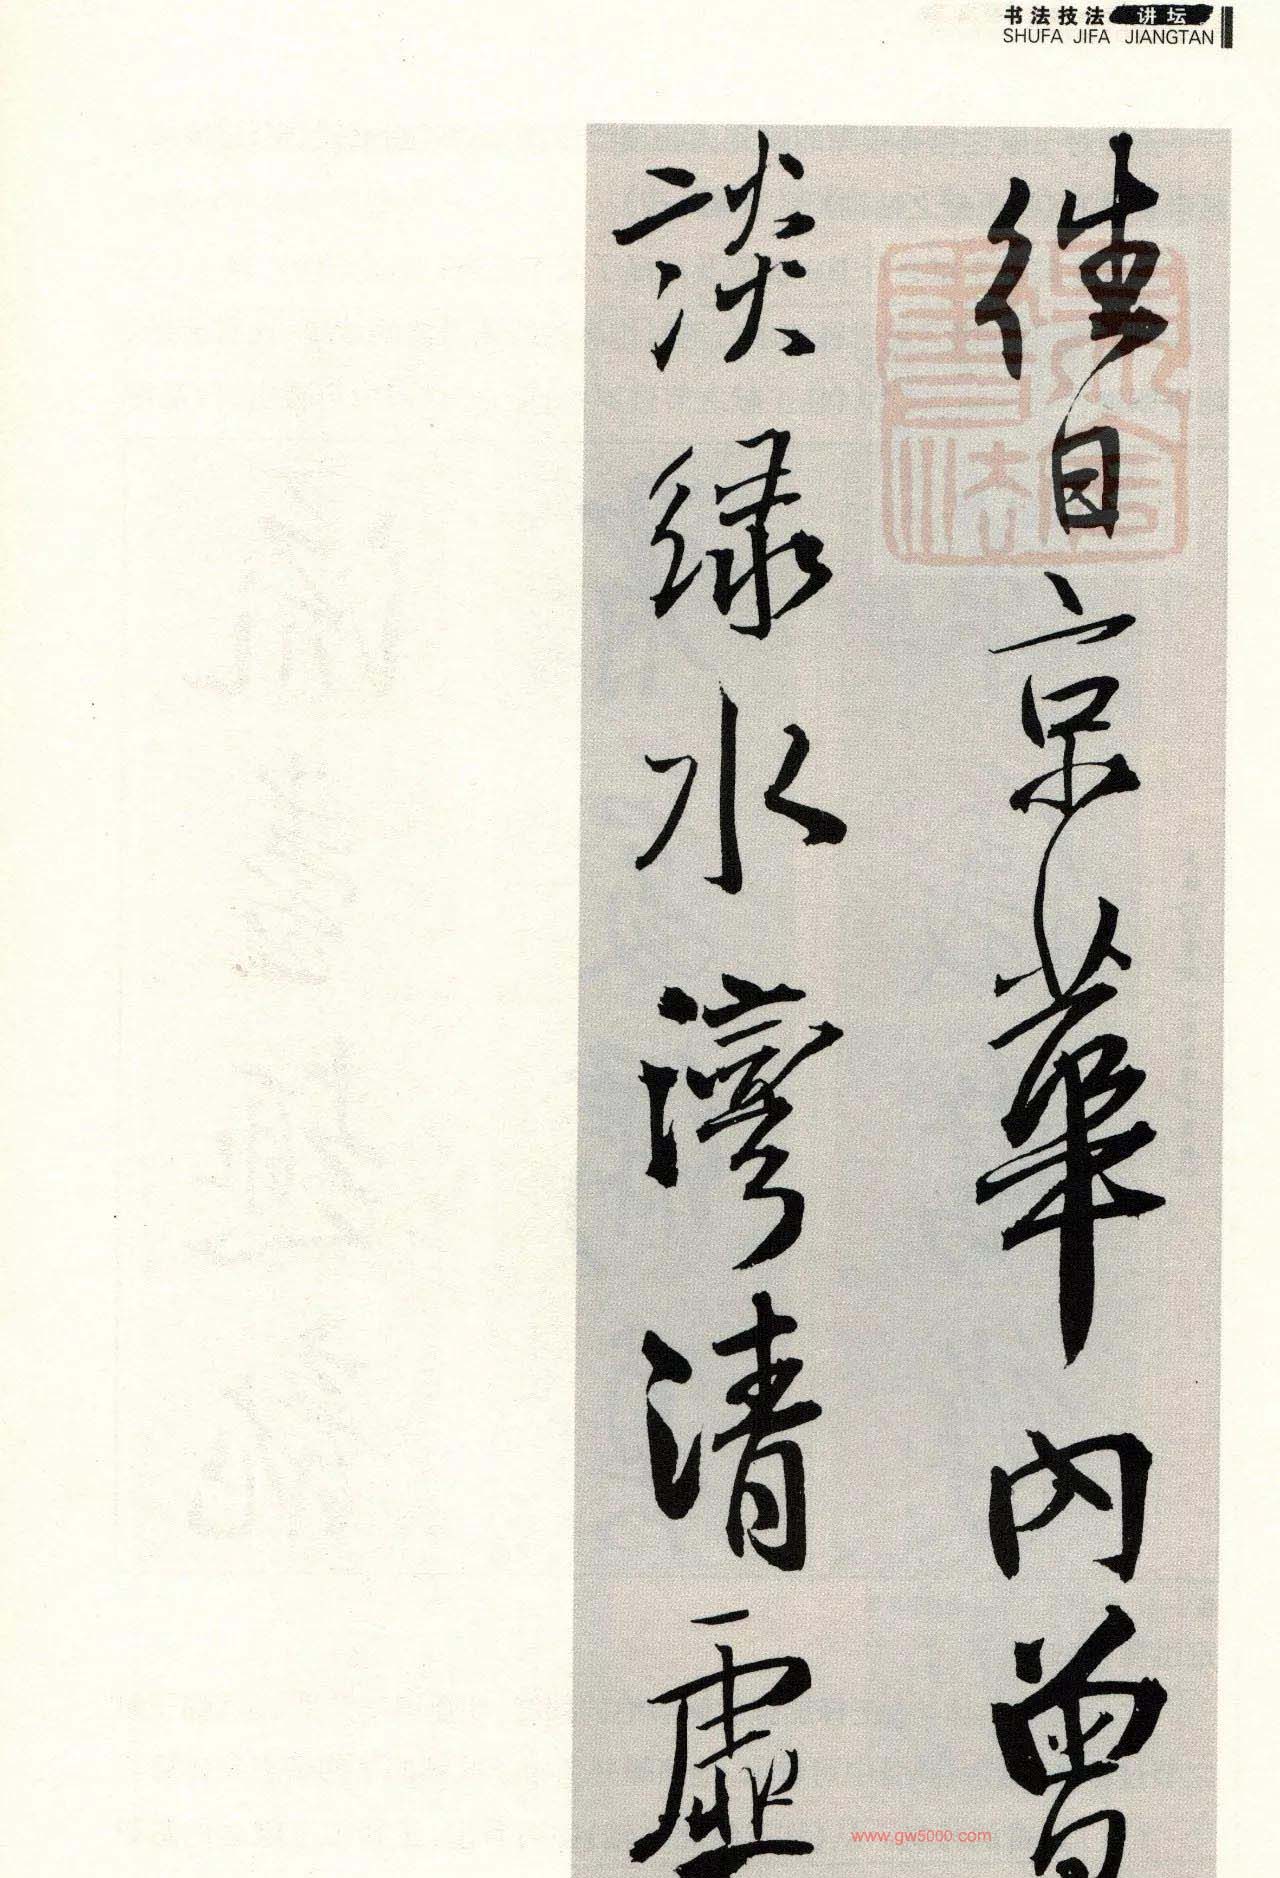 书法技法 讲坛
SHUFA JIFA JIANGTAN
往日京華内曾
談緑水灣清虚
www.gw5000.com